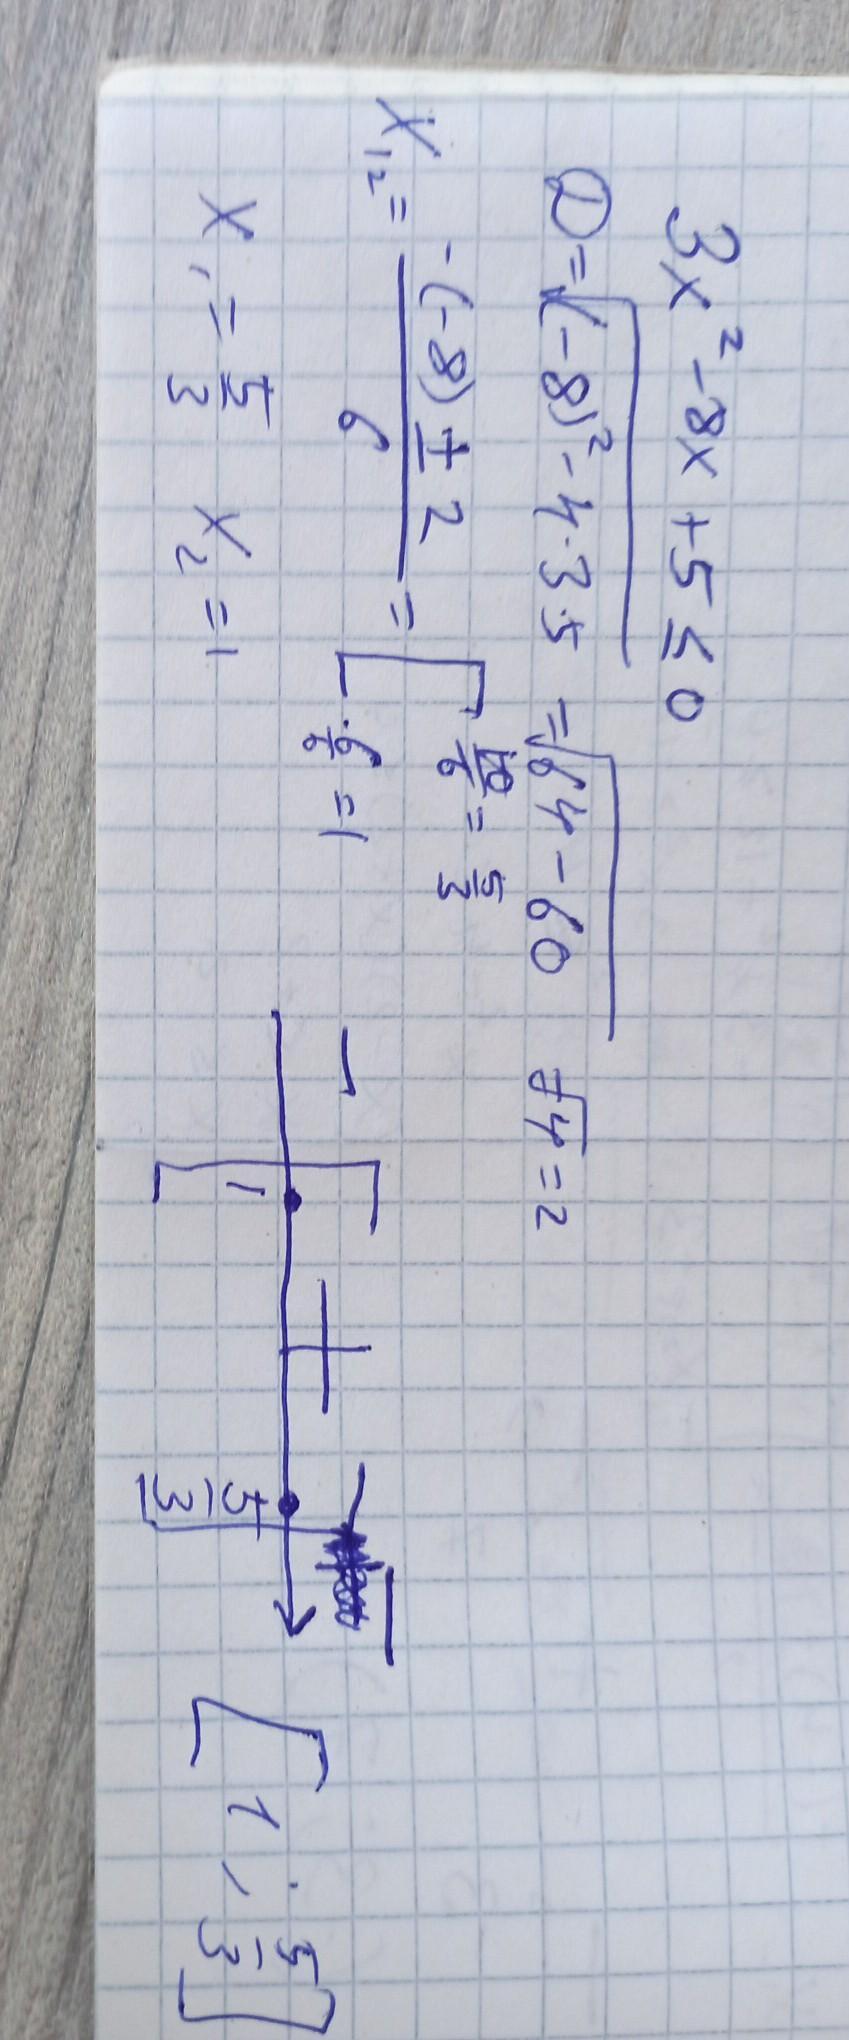 3x² - 8x + 5 ≤ 0
D = √(-8)² - 4·3·5 = √64 - 60 √4 = 2
x₁₂ = (-(-8) ± 2)/6 = [ 10/6 = 5/3
6/6 = 1
x₁ = 5/3 x₂ = 1
- + -
[ 1 5/3 ]
[1; 5/3]